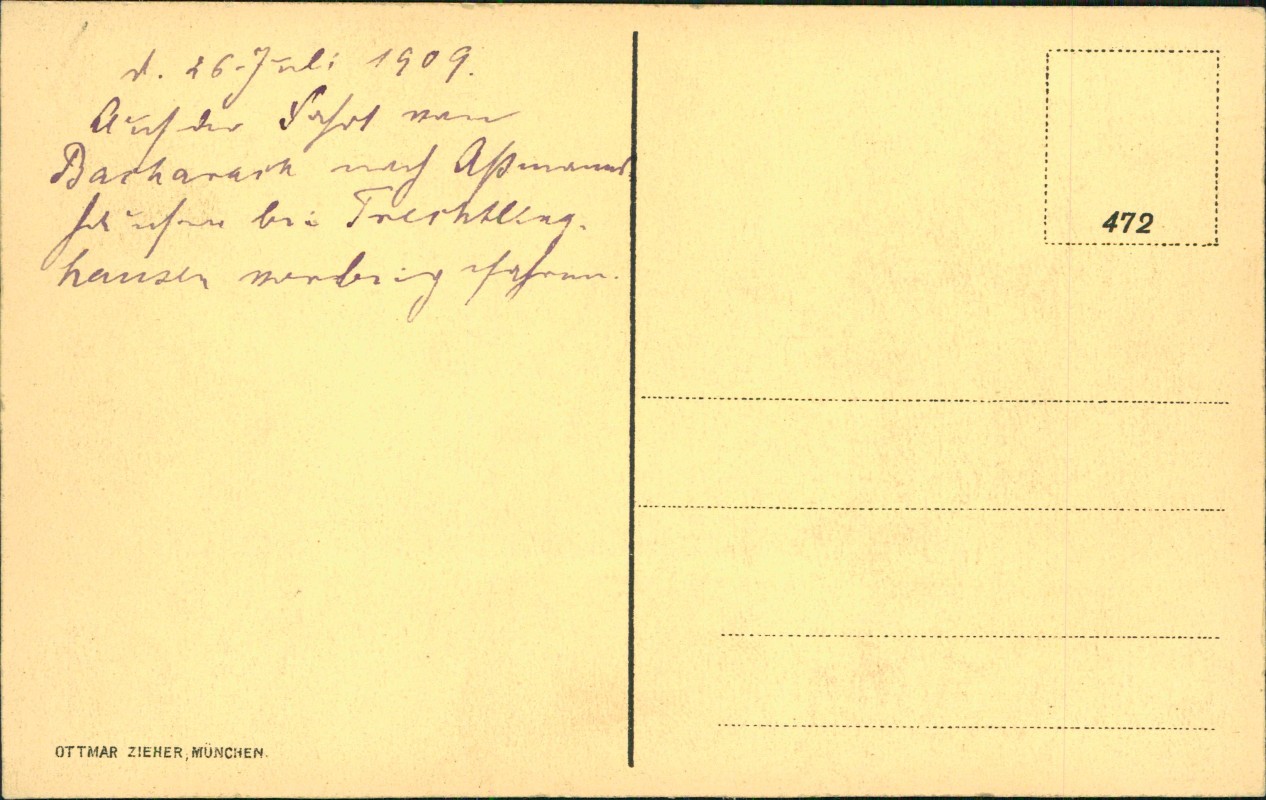 d. 26. Juli 1909.
Auf der Fahrt von
Bacharach nach Aßmanns-
hausen bei Trechtling-
hausen vorbeigefahren.
472
OTTMAR ZIEHER, MÜNCHEN.